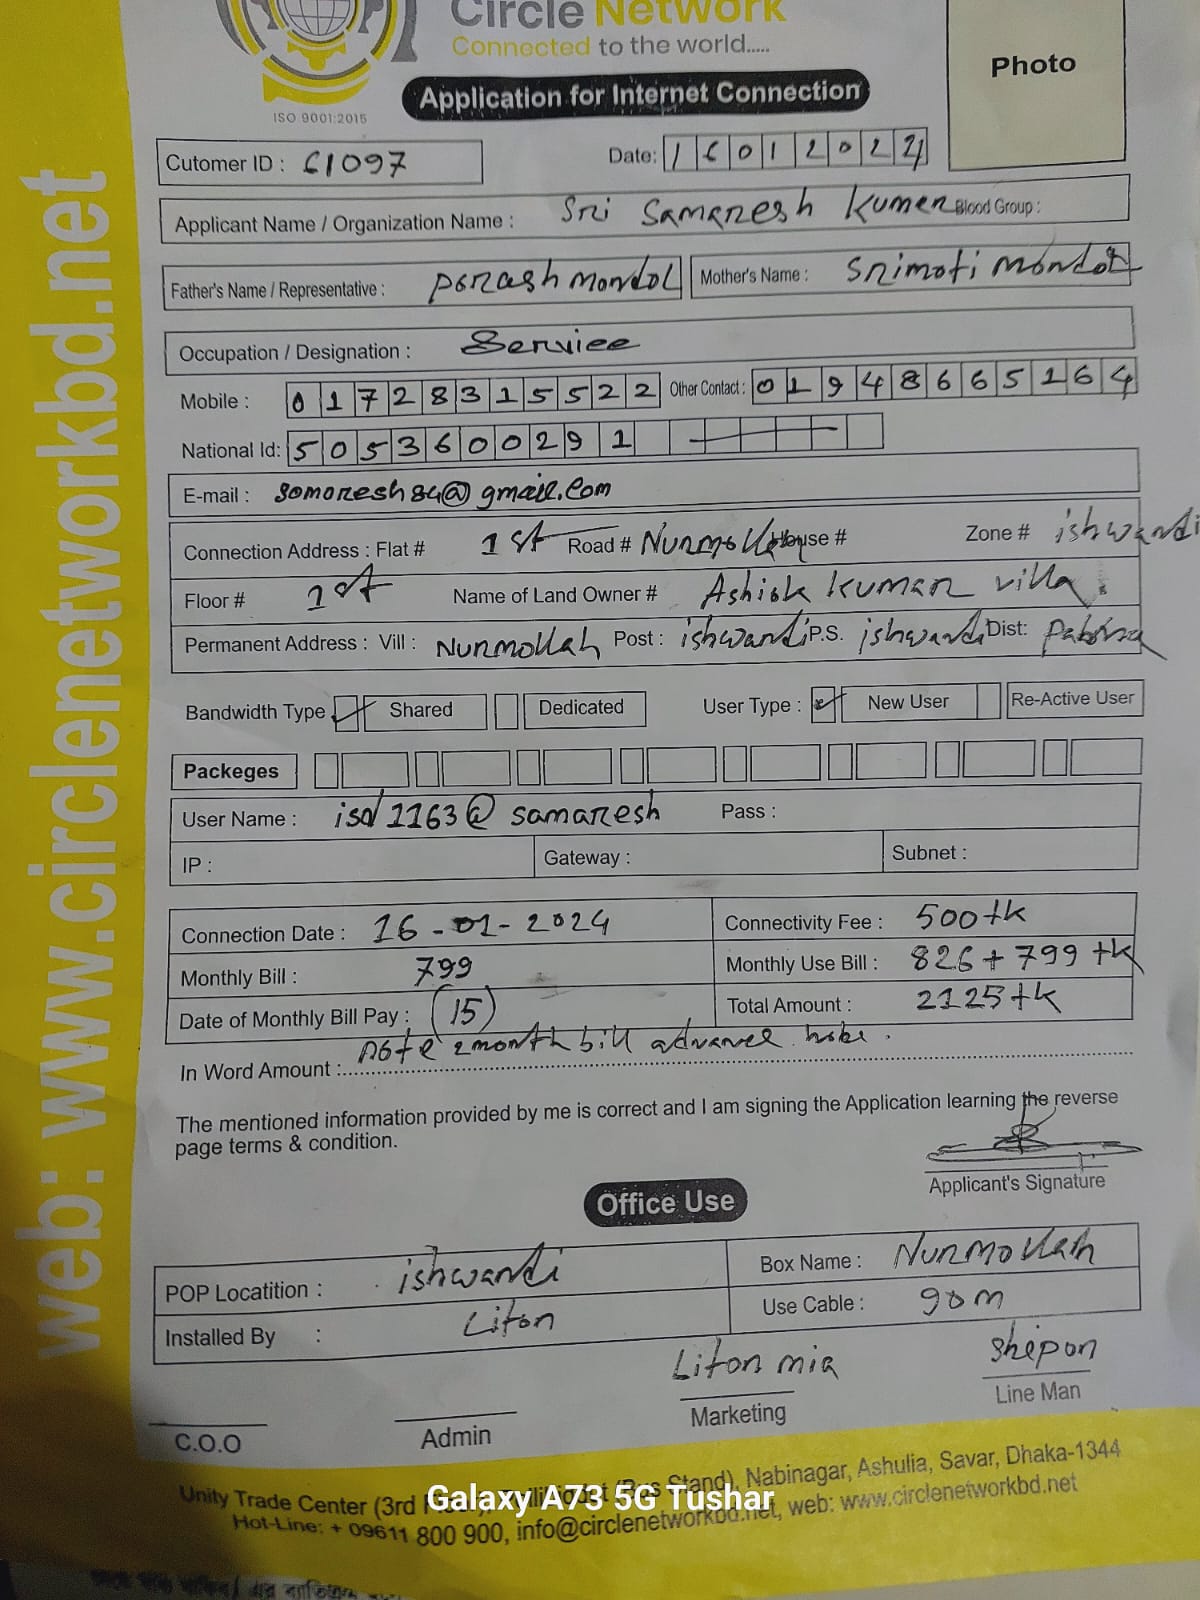 Circle Network
Connected to the world.....
Application for Internet Connection
Photo
ISO 9001:2015
Cutomer ID : 61097
Date: 1 6 0 1 2 0 2 4
Applicant Name / Organization Name : Sri Samaresh Kumer Blood Group :
Father's Name / Representative : Mondol Mother's Name : Srimoti Mondol
Occupation / Designation : Service
Mobile : 0 1 7 2 8 3 1 5 5 2 2 Other Contact : 0 1 9 4 8 6 6 5 1 6 4
National Id: 5 0 5 3 6 0 0 2 9 1
E-mail : somoresh84@gmail.com
Connection Address : Flat # 1st Road # Nurmollah House # Zone # ishwardi
Floor # 1st Name of Land Owner # Ashish kumar villa
Permanent Address : Vill : Nurmollah Post : ishwardi P.S. ishwardi Dist: Pabna
Bandwidth Type Shared Dedicated User Type : New User Re-Active User
Packeges
User Name : isd1163@samaresh Pass :
IP : Gateway : Subnet :
Connection Date : 16-01-2024 Connectivity Fee : 500tk
Monthly Bill : 799 Monthly Use Bill : 826+799 tk
Date of Monthly Bill Pay : (15) Total Amount : 2125tk
Note 2month bill advance hobe.
In Word Amount :
The mentioned information provided by me is correct and I am signing the Application learning the reverse
page terms & condition.
Applicant's Signature
Office Use
POP Locatition : ishwardi Box Name : Nurmollah
Installed By : Liton Use Cable : 90m
Liton mia Shipon
C.O.O Admin Marketing Line Man
Unity Trade Center (3rd (Bus Stand), Nabinagar, Ashulia, Savar, Dhaka-1344
Hot-Line: + 09611 800 900, info@circlenetworkbd.net, web: www.circlenetworkbd.net
Galaxy A73 5G Tushar
web: www.circlenetworkbd.net